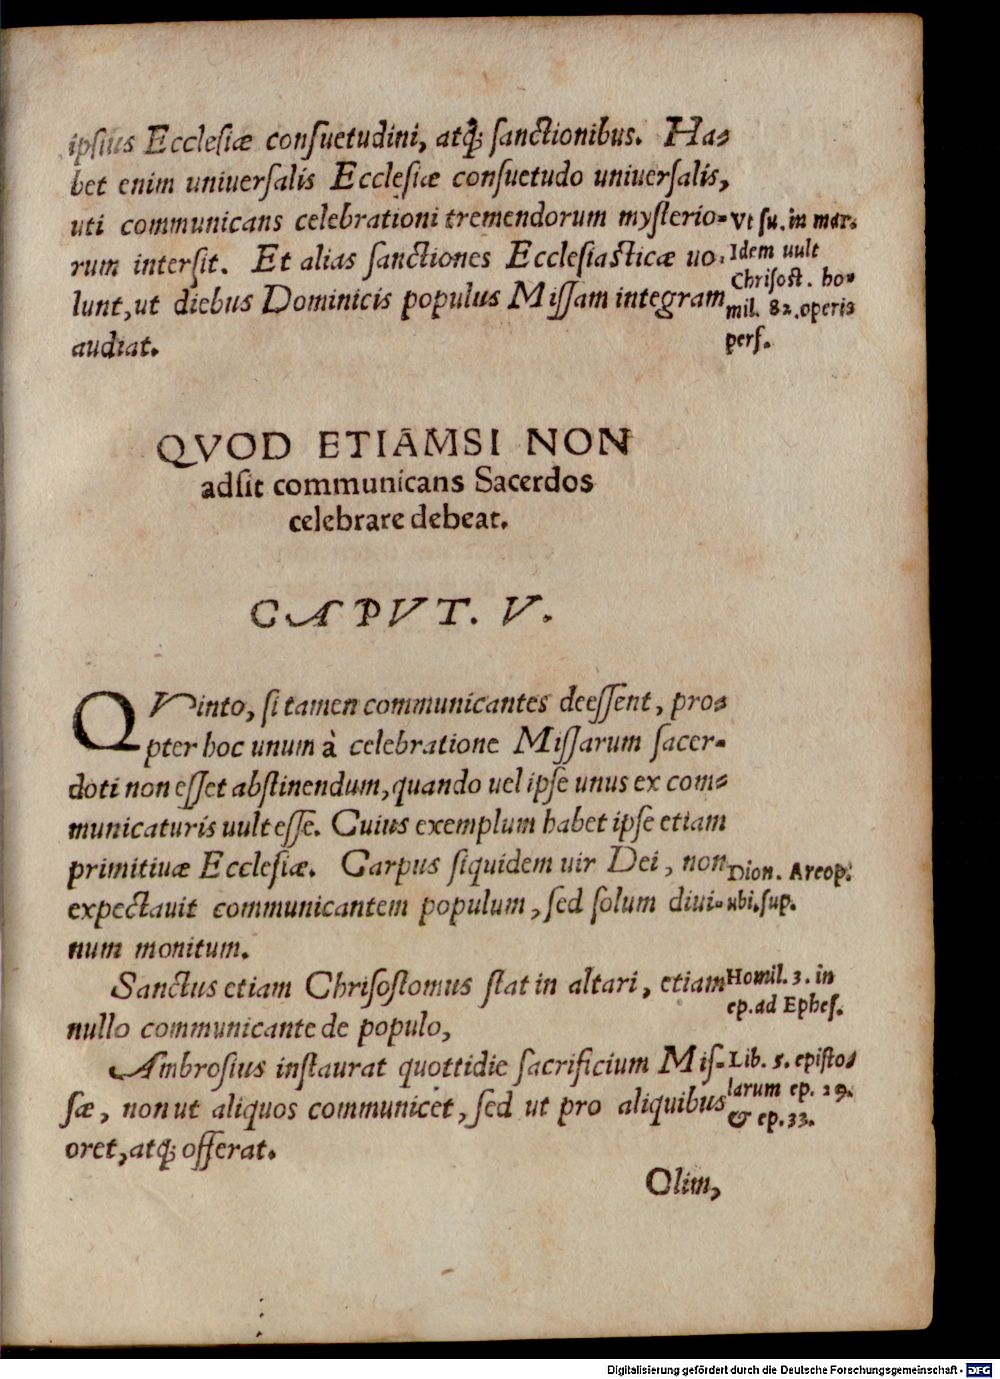 ipsius Ecclesiæ consuetudini, atq́; sanctionibus. Ha-
bet enim uniuersalis Ecclesiæ consuetudo uniuersalis,
uti communicans celebrationi tremendorum mysterio-
rum intersit. Et alias sanctiones Ecclesiasticæ uo-
lunt, ut diebus Dominicis populus Missam integram
audiat.
Vt su. in mar.
Idem uult
Chrisost. ho-
mil. 82. operis
perf.
QVOD ETIAMSI NON
adsit communicans Sacerdos
celebrare debeat.
CAPVT. V.
QVinto, si tamen communicantes deessent, pro-
pter hoc unum à celebratione Missarum sacer-
doti non esset abstinendum, quando uel ipse unus ex com-
municaturis uult esse. Cuius exemplum habet ipse etiam
primitiuæ Ecclesiæ. Carpus siquidem uir Dei, non
expectauit communicantem populum, sed solum diui-
num monitum.
Dion. Areop.
ubi. sup.
Sanctus etiam Chrisostomus stat in altari, etiam
nullo communicante de populo,
Homil. 3. in
ep. ad Ephes.
Ambrosius instaurat quottidie sacrificium Mis-
sæ, non ut aliquos communicet, sed ut pro aliquibus
oret, atq́; offerat.
Lib. 5. episto-
larum ep. 29.
& ep. 33.
Olim,
Digitalisierung gefördert durch die Deutsche Forschungsgemeinschaft - DFG